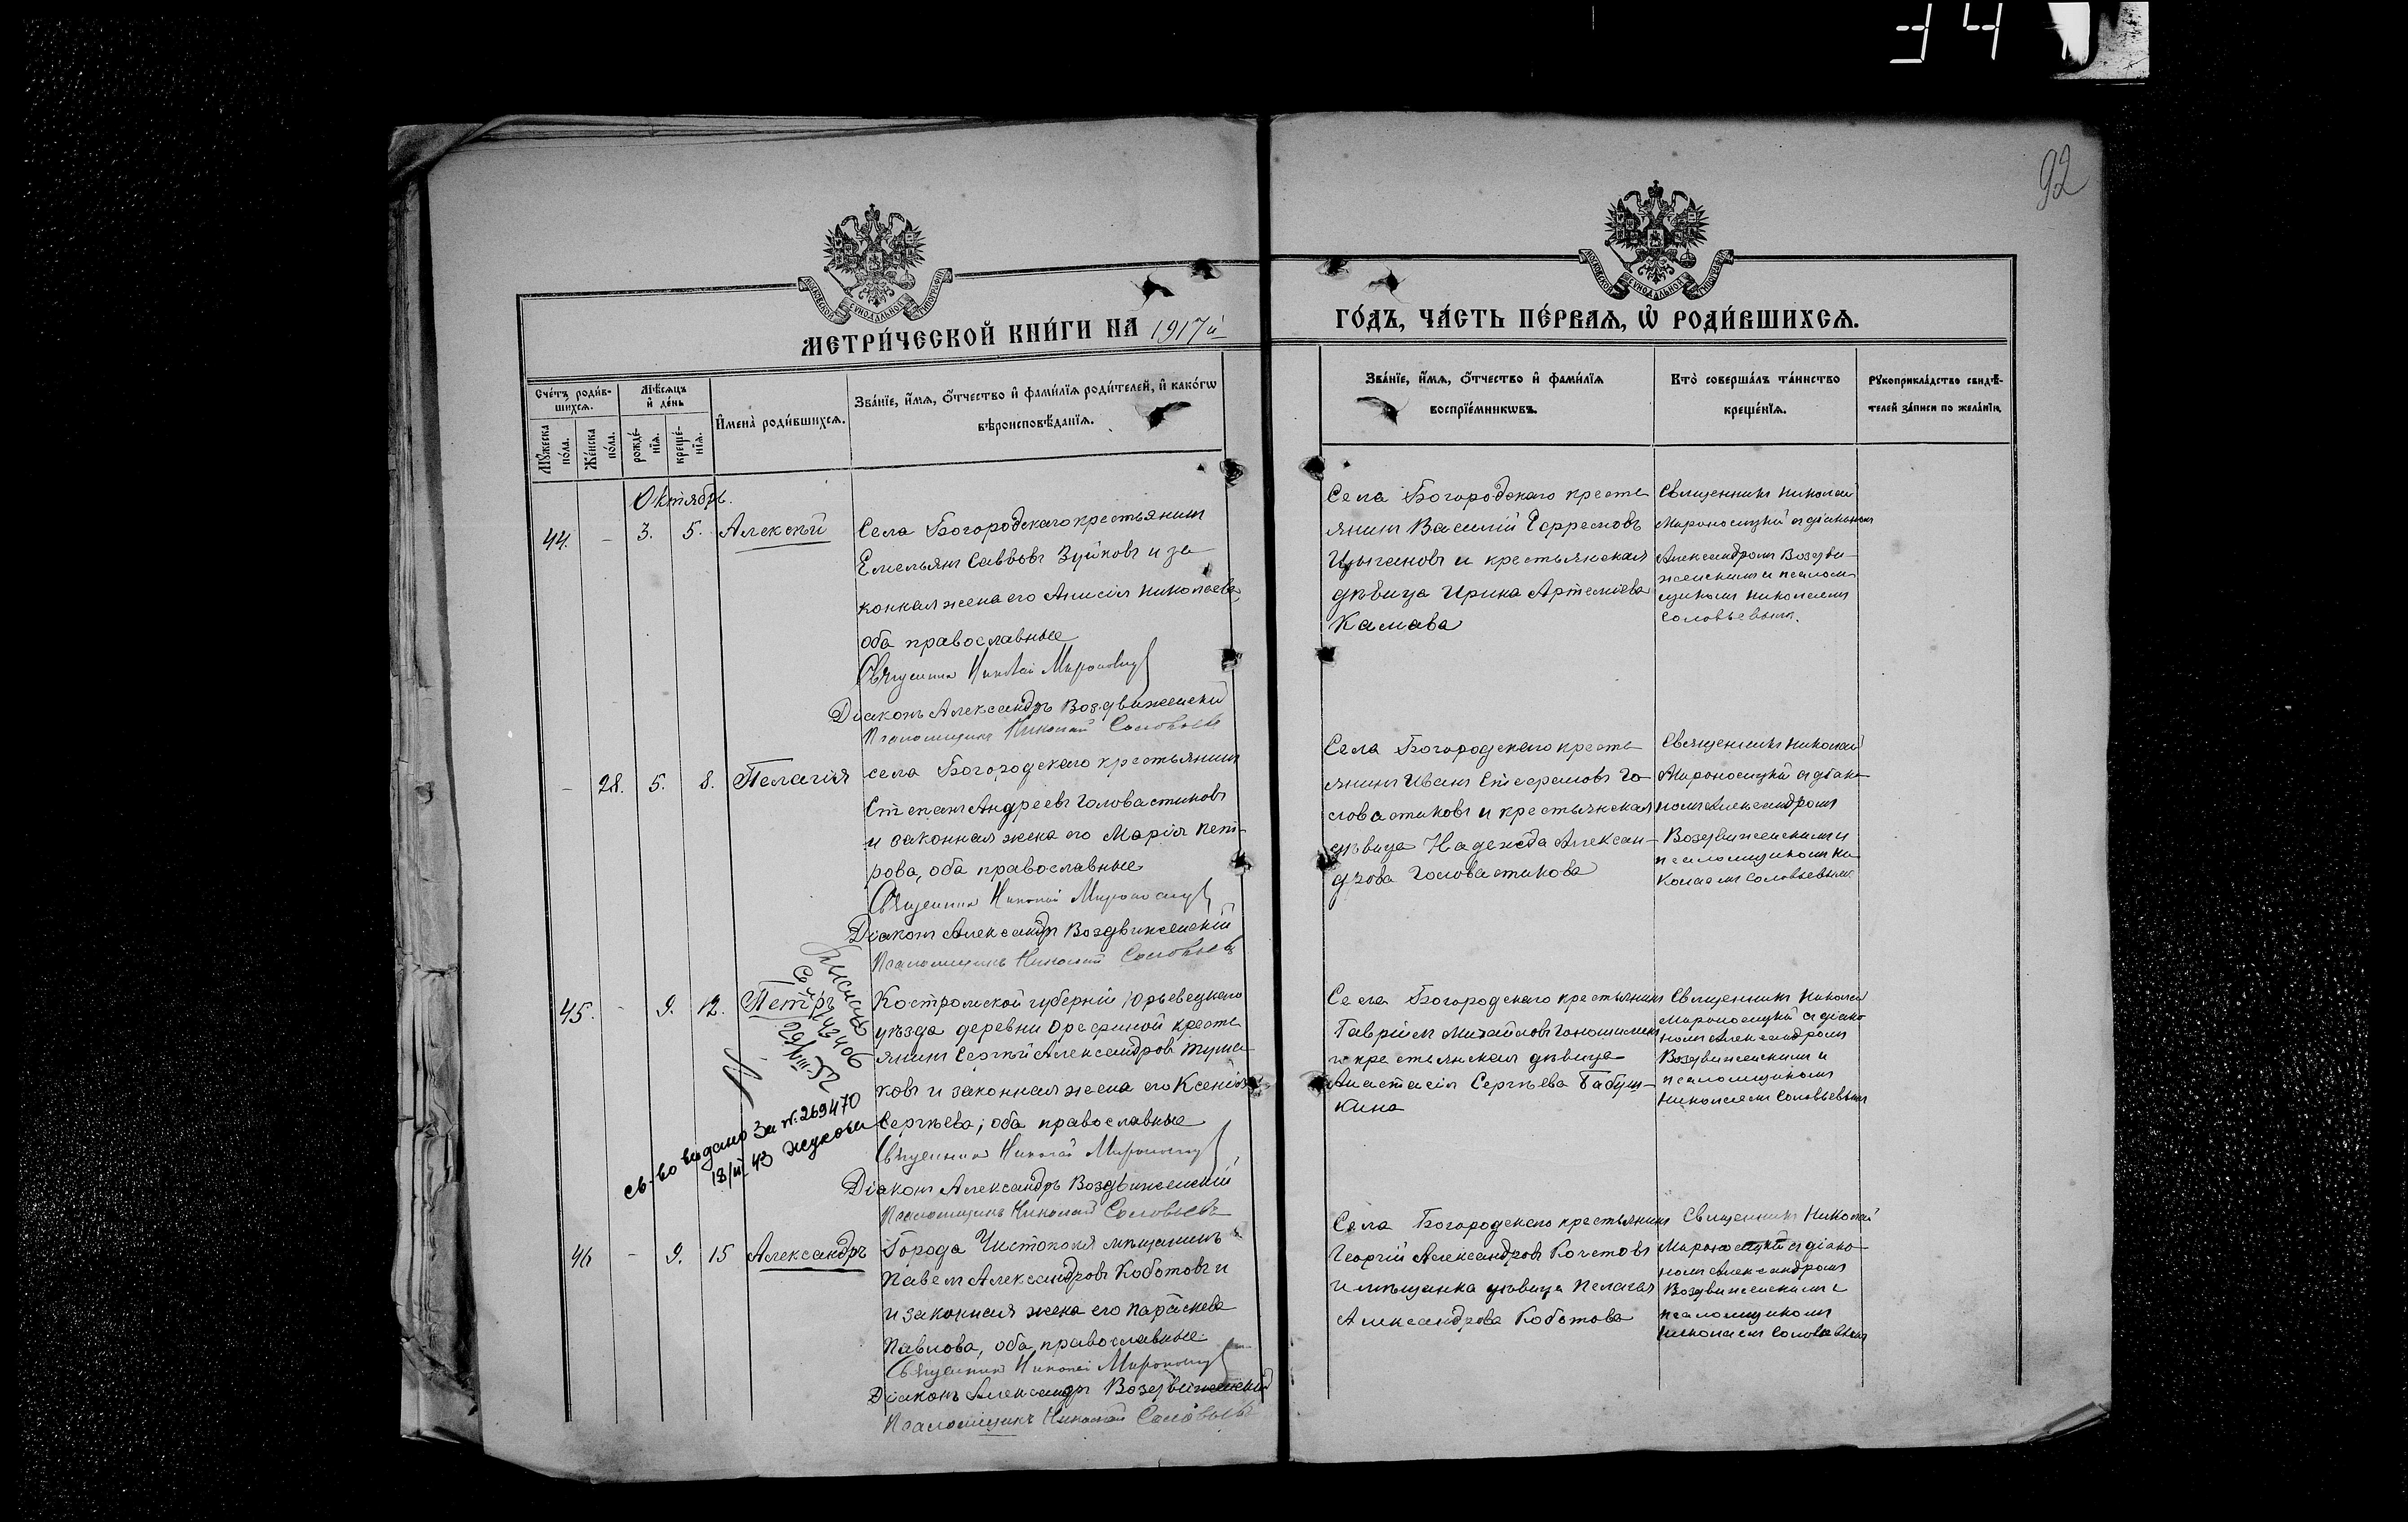 92
МЕТРИ́ЧЕСКОЙ КНИ́ГИ НА 1917й
ГО́ДЪ, ЧА́СТЬ ПЕ́РВАѦ, Ѡ҆ РОДИ́ВШИХСѦ.
Сче́тъ роди́вшихсѧ.
Мꙋ́жеска по́ла.
Же́нска по́ла.
Мѣ́сѧцъ и҆ де́нь
рожде́нїѧ.
креще́нїѧ.
И҆мена̀ роди́вшихсѧ.
Зва́нїе, и҆́мѧ, ѻ҆́тчество и҆ фами́лїѧ роди́телей, и҆ како́гѡ
вѣроисповѣ́данїѧ.
Зва́нїе, и҆́мѧ, ѻ҆́тчество и҆ фами́лїѧ
воспрїе́мникѡвъ.
Кто̀ соверша́лъ та́инство
креще́нїѧ.
Рꙋкоприкла́дство свидѣ́-
телей за́писи по жела́нїю.
Октябрь.
44. - 3. 5. Алексѣй
Села Богородскаго крестьянинъ
Емельянъ Саввовъ Зуйковъ и за
конная жена его Анисія Николаева,
оба православные
Священникъ Николай Мироносицкій
Діаконъ Александръ Воздвиженскій
Псаломщикъ Николай Соловьевъ
Села Богородскаго кресть
янинъ Василій Ефремовъ
Цыгановъ и крестьянская
дѣвица Ирина Артемиева
Камава
Священникъ Николай
Мироносицкій съ діакономъ
Александромъ Воздви-
женскимъ и псалом-
щикомъ Николаемъ
Соловьевымъ.
- 28. 5. 8. Пелагія
села Богородскаго крестьянинъ
Степанъ Андреевъ Головастиковъ
и законная жена его Марія Пет-
рова, оба православные
Священникъ Николай Мироносицкій
Діаконъ Александръ Воздвиженскій
Псаломщикъ Николай Соловьевъ
Села Богородскаго кресть
янинъ Иванъ Го-
ловастиковъ и крестьянская
дѣвица Надежда Алексан-
дрова Головастикова
Священникъ Николай
Мироносицкій съ діако
номъ Александромъ
Воздвиженскимъ и
псаломщикомъ Ни
колаемъ Соловьевымъ
45. - 9. 12. Петръ
29/VIII-52
св-во выдано за №.269470
43
Костромской губерніи Юрьевецкаго
уѣзда деревни кресть
янинъ Сергѣй Александровъ
ковъ и законная жена его Ксенія
Сергѣева, оба православные
Священникъ Николай Мироносицкій
Діаконъ Александръ Воздвиженскій
Псаломщикъ Николай Соловьевъ
Села Богородскаго крестьянинъ
Гавріилъ Михайловъ
и крестьянская дѣвица
Анастасія Сергѣева Бабуш-
кина
Священникъ Николай
Мироносицкій съ діако
номъ Александромъ
Воздвиженскимъ и
псаломщикомъ
Николаемъ Соловьевымъ
46 - 9. 15 Александръ
Города Чистополя мѣщанинъ
Павелъ Александровъ Коботовъ и
и законная жена его Параскева
Павлова, оба православные.
Священникъ Николай Мироносицкій
Діаконъ Александръ Воздвиженскій
Псаломщикъ Николай Соловьевъ
Села Богородскаго крестьянинъ
Георгій Александровъ Кочетовъ
и мѣщанка дѣвица Пелагея
Александрова Коботова
Священникъ Николай
Мироносицкій съ діако-
номъ Александромъ
Воздвиженскимъ и
псаломщикомъ
Николаемъ Соловьевымъ